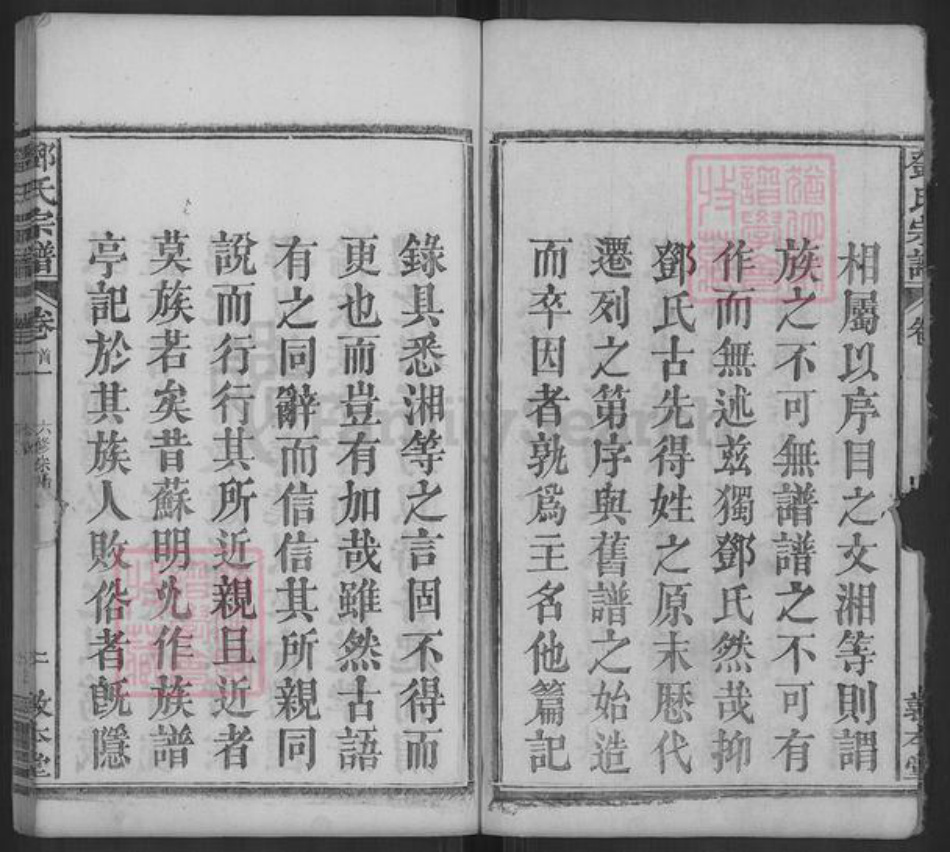 相屬以序目之文湘等則謂
族之不可無譜譜之不可有
作而無述玆獨鄧氏然哉抑
鄧氏古先得姓之原末歷代
遷列之第序與舊譜之始造
而卒因者孰爲主名他篇記
錄具悉湘等之言固不得而
更也而豈有加哉雖然古語
有之同辭而信信其所親同
說而行行其所近親且近者
莫族若矣昔蘇明允作族譜
亭記於其族人敗俗者旣隱
鄧氏宗譜
卷首一
六修
二
敦本堂
鄧氏宗譜
卷
敦本堂
FamilySearch